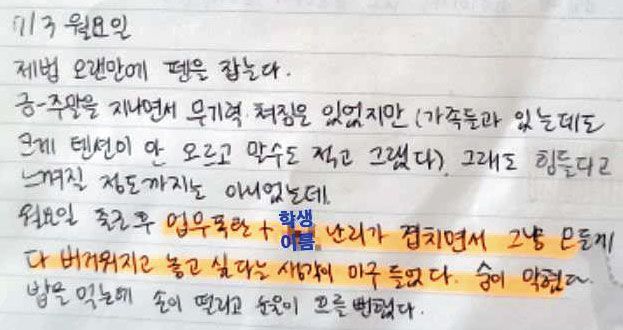 7/3 월요일
제법 오랜만에 펜을 잡는다.
금-주말을 지나면서 무기력. 쳐짐은 있었지만 (가족들과 있는데도
크게 텐션이 안 오르고 말수도 적고 그랬다). 그래도 힘들다고
느껴질 정도까지는 아니었는데.
월요일 출근 후 업무폭탄 + 학생 이름 난리가 겹치면서 그냥 모든게
다 버거워지고 놓고 싶다는 생각이 마구 들었다. 숨이 막혔다.
밥을 먹는데 손이 떨리고 눈물이 흐를 뻔했다.